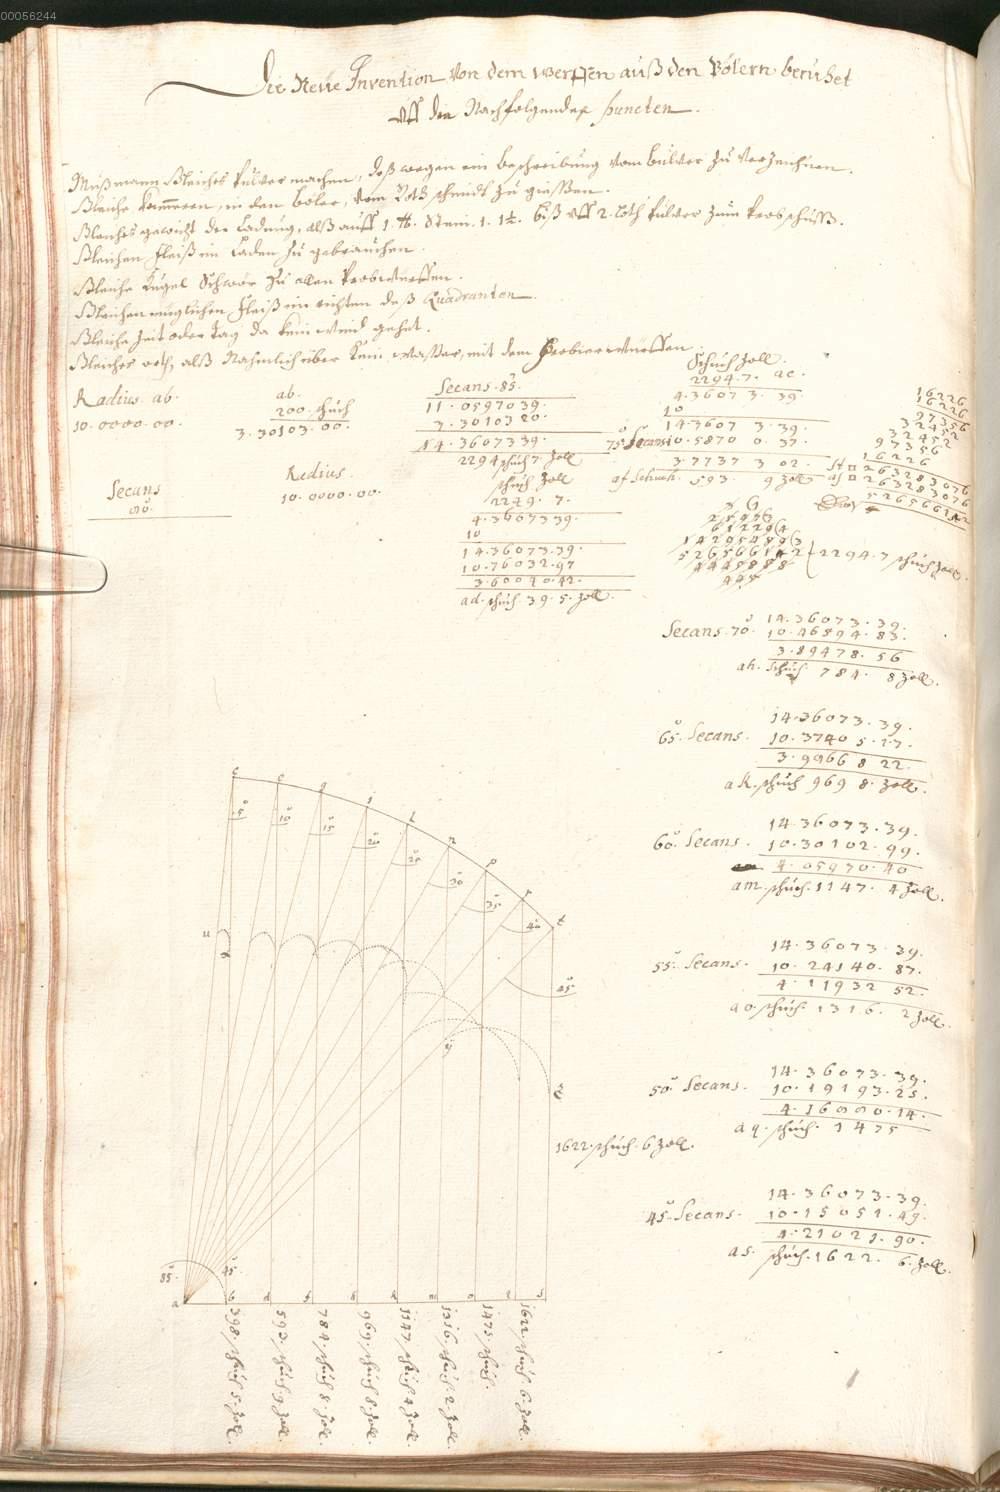 00056244
Die Neue Invention Von dem werffen auß den Bölern beruhet
uff den Nachfolgenden puncten.
Muß mann Gleiches Pulver machen, deß wegen ein beschreibung vom bulver zu verzeichnen.
Gleiche Kammeren, in den böler, vom Rohtschmidt zu giessen.
Gleiches gewicht der Ladung, alß auff 1 ℔. stein. 1. 1½. biß uff 2. loth pulver zum probschuß.
Gleichen fleiß im Laden zu gebrauchen.
Gleiche Kugel schwör zu allen probwürffen.
Gleichen müglichen fleiß im richten deß Quadranten.
Gleiche Zeit oder tag da kein wind gehet.
Gleiches orth, alß Nahmlich über Kein wasser, mit dem Probier würffen.
Radius. ab.
10. 0000. 00.
ab.
200. schuch
3. 30103. 00.
Secans. 85.
11. 0597039.
3. 3010300.
14. 3607339.
2294 schuch 7. Zoll
Secans
00.
Radius.
10. 0000. 00.
schuch Zoll
2249. 7.
4. 3607339.
10
14. 36073. 39.
10. 76032. 97
3. 60040. 42.
ad. schuch. 39. 5. Zoll.
Schuch Zoll.
2294. 7. ac.
4. 3607 3. 39
10
14. 3607 3. 39.
75° Secans 10. 5870 0. 37.
3. 7737 3 02.
af schuch. 593. 9 Zoll
16226
16226
97356
32452
32452
97356
16226
263283076
263283076
526566142
2294. 7 schuch Zoll.
Secans. 70°. 14. 36073. 39.
10. 46594. 83.
3. 89478. 56
ah. schuch. 784. 8 Zoll.
14. 36073. 39.
65°. Secans. 10. 3740 5. 17.
3. 9866 8 22.
aK. schuch 969 8. Zoll.
14. 36073. 39.
60°. Secans. 10. 30102. 99.
4. 05970. 40
am. schuch. 1147. 4 Zoll.
14. 36073. 39.
55°. Secans. 10. 24140. 87.
4. 11932 52.
ao. schuch. 1316. 2 Zoll.
14. 36073. 39.
50°. Secans. 10. 19193. 25.
4. 16880. 14.
aq. schuch. 1475
14. 36073. 39.
45°. Secans. 10. 15051. 49.
4. 21021. 90.
as. schuch. 1622. 6. Zoll.
c e g i L n p r t
5° 10° 15° 20° 25° 30° 35° 40° 45°
u
y
z
1622. schuch. 6 Zoll.
85°. 45°.
a b d f h k m o q s
398. schuch 5. Zoll.
593. schuch. 9 Zoll.
784. schuch 8. Zoll.
969. schuch 8 Zoll.
1147. schuch 4 Zoll.
1316. schuch. 2. Zoll.
1475 schuch.
1622. schuch. 6. Zoll.